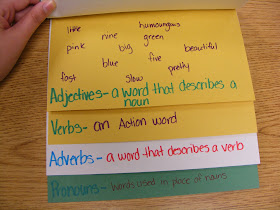 little humoungous
nine green
pink big beautiful
blue five
fast slow pretty
Adjectives- a word that describes a
noun
Verbs- an Action word
Adverbs- a word that describes a verb
Pronouns- Words used in place of nouns